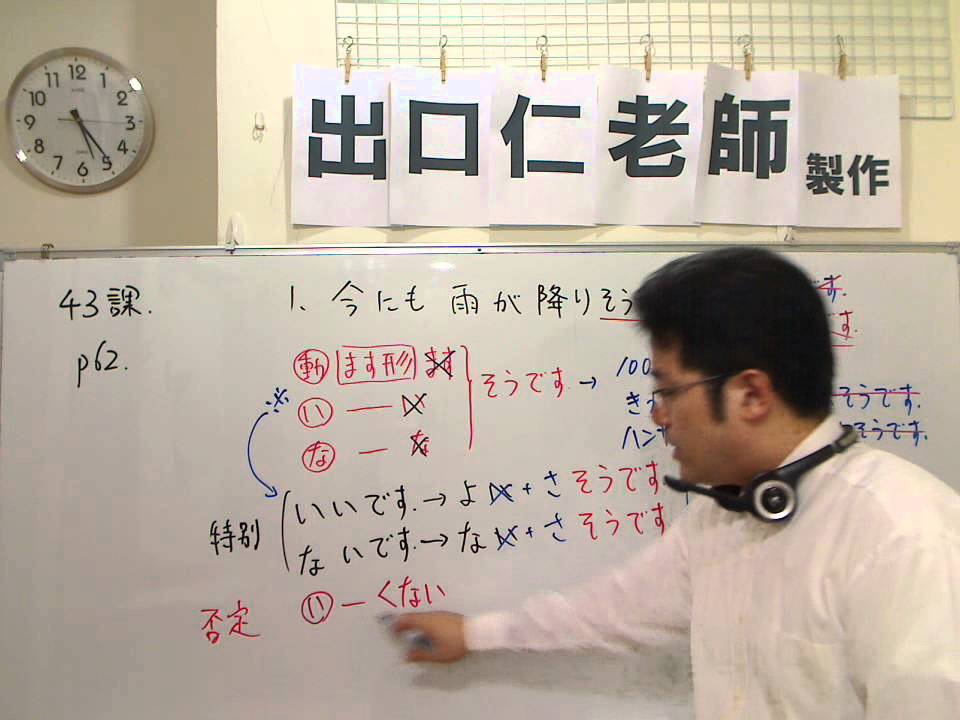 12
1
2
3
4
5
6
7
8
9
10
11
出口仁老師 製作
43課.
p62.
1. 今にも 雨が 降りそう
です.
す.
動 ます形 ます
い ー い
な ー な
そうです. →
100
き
ハン
そうです.
そうです.
※
特別
いいです. → よい + さ そうです
ないです. → ない + さ そうです
否定
い ー くない